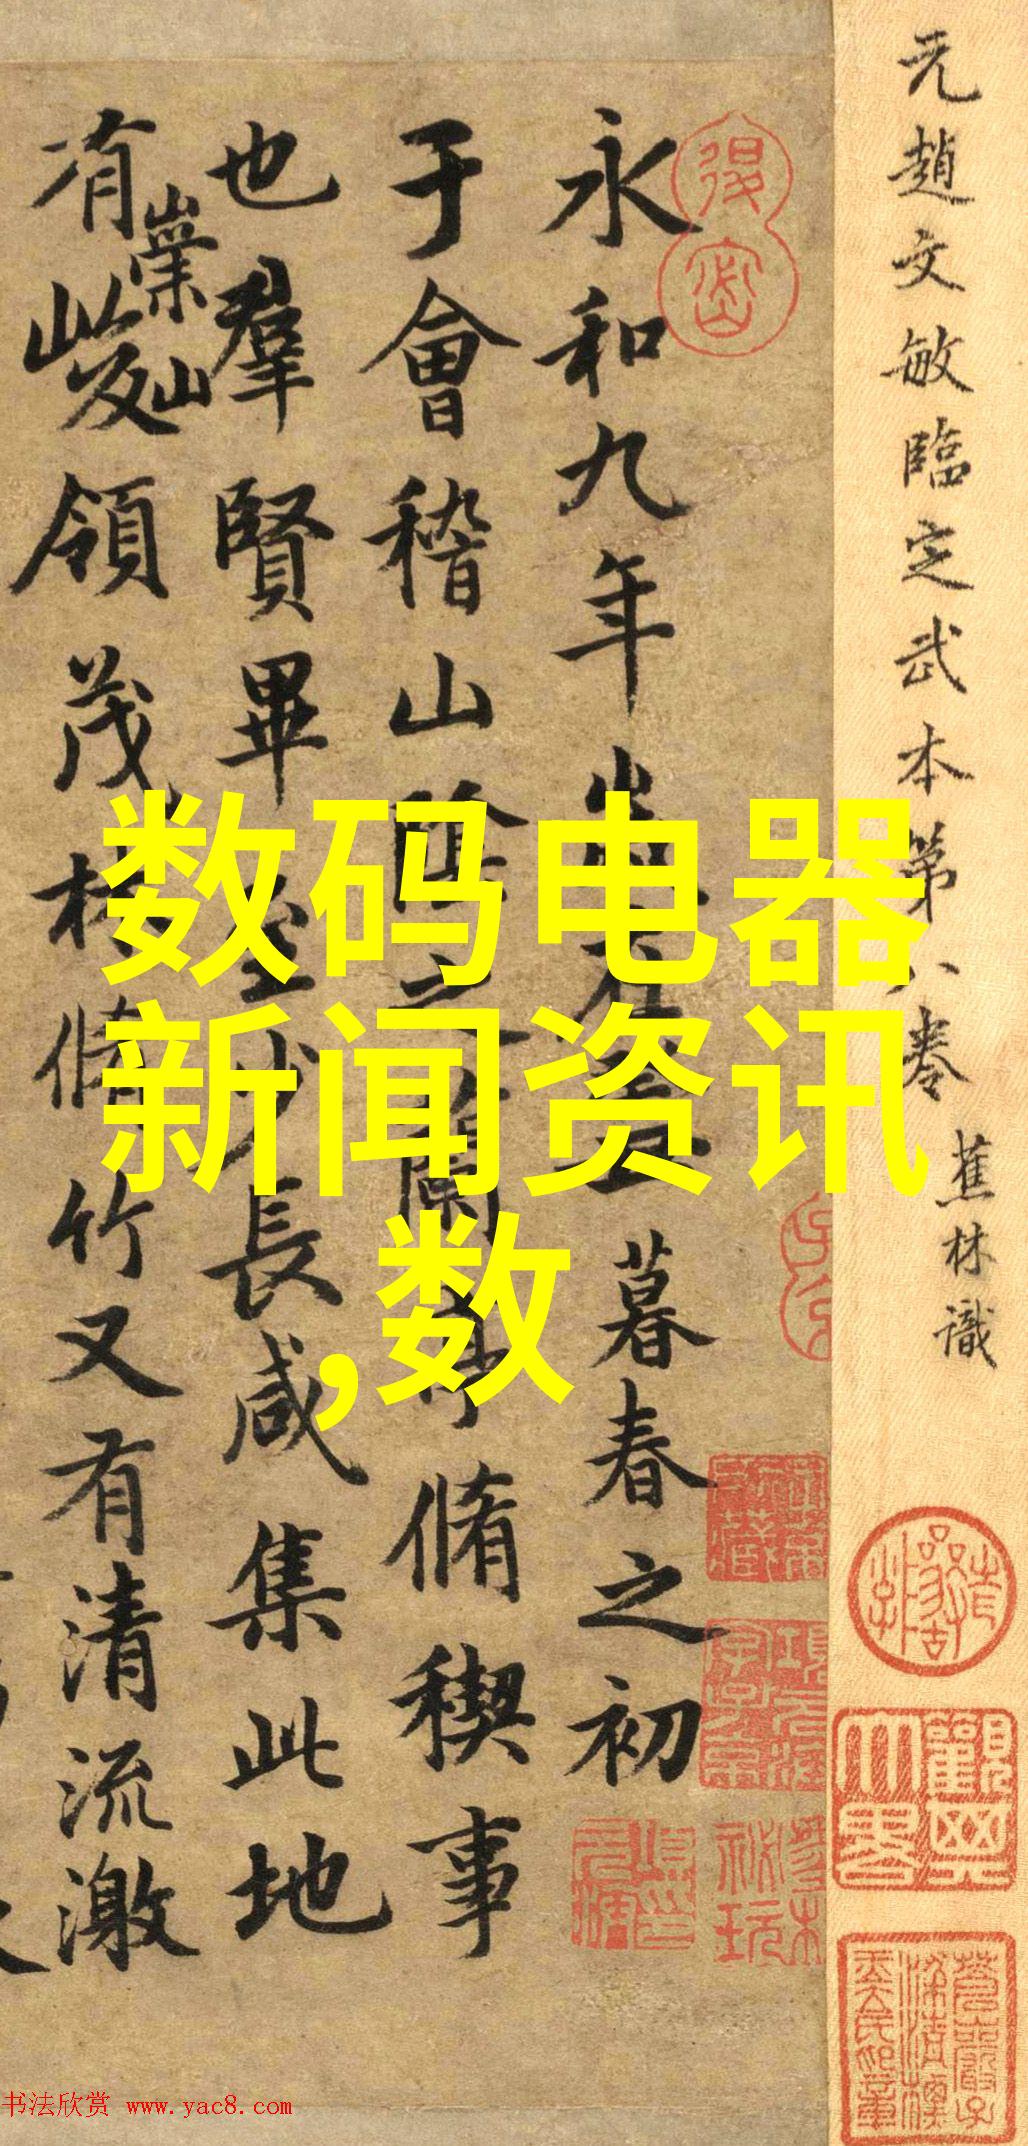 元趙文敏臨定武本第八卷
蕉林識
永和九年歲在癸丑暮春之初
于會稽山陰之蘭亭脩稧事
也羣賢畢至少長咸集此地
有崇山
峻領茂林脩竹又有清流激
数码电器
新闻资讯
,数
书法欣赏 www.yac8.com